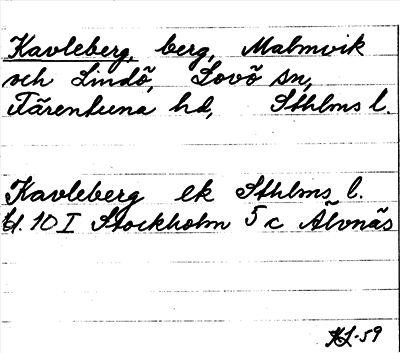 Kavleberg, berg, Malmvik
och Lindö, Lovö sn,
Färentuna hd, Sthlms l.
Kavleberg ek Sthlms l.
bl. 10 I Stockholm 5 c Älvnäs
KL-59